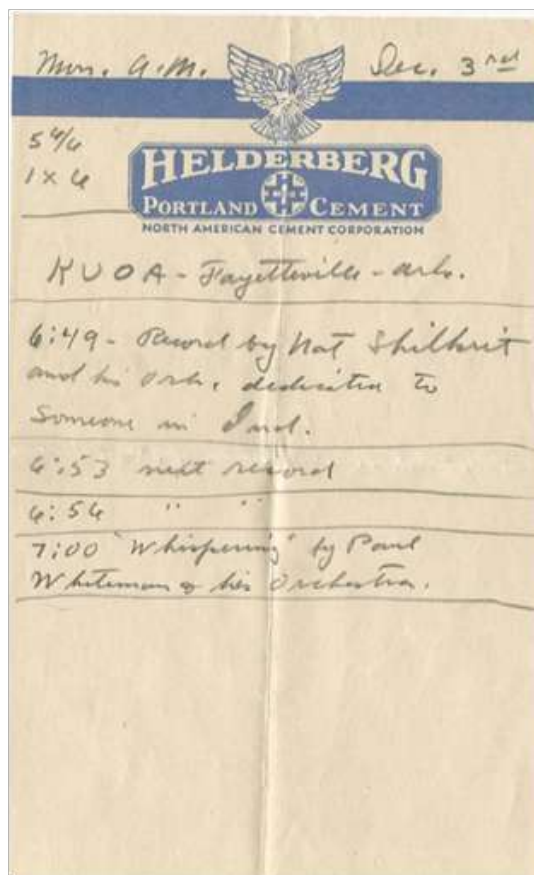 Mon. A.M. Dec. 3rd
1 x 6
HELDERBERG
PORTLAND CEMENT
NORTH AMERICAN CEMENT CORPORATION
KUOA - Fayetteville - Ark.
6:49 - Record by Nat Shilkrit
and his Orch. dedicated to
Someone in Ind.
6:53 next record
6:56 " "
7:00 "Whispering" by Paul
Whiteman & his Orchestra.